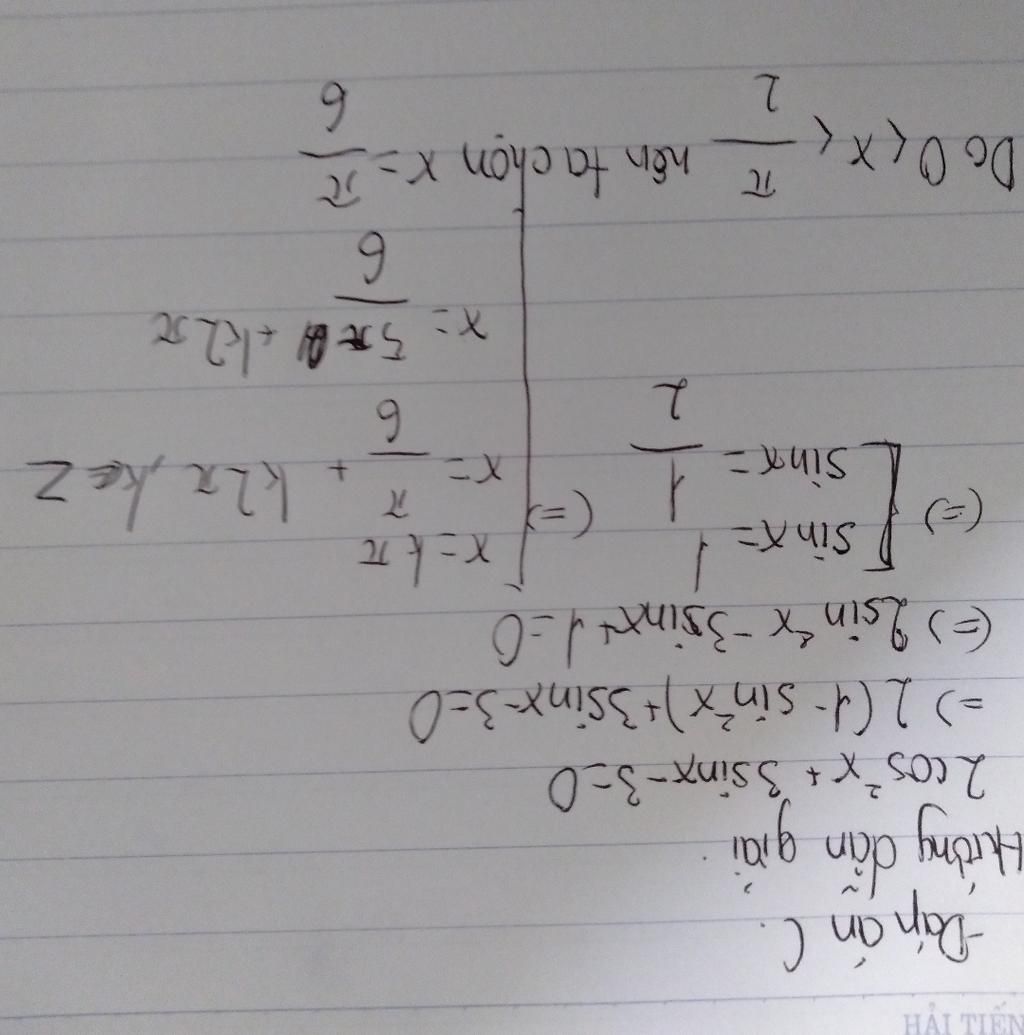 HẢI TIẾN
-Đáp án C.
Hướng dẫn giải.
2cos²x + 3sinx-3=0
=> 2(1-sin²x)+3sinx-3=0
(=) 2sin²x -3sinx+1=0
(=) [ sinx=1 (=) | x=kπ
sinx=1/2 | x=π/6 + k2π, k∈Z
x=5π/6 +k2π
Do 0<x<π/2 nên ta chọn x=π/6